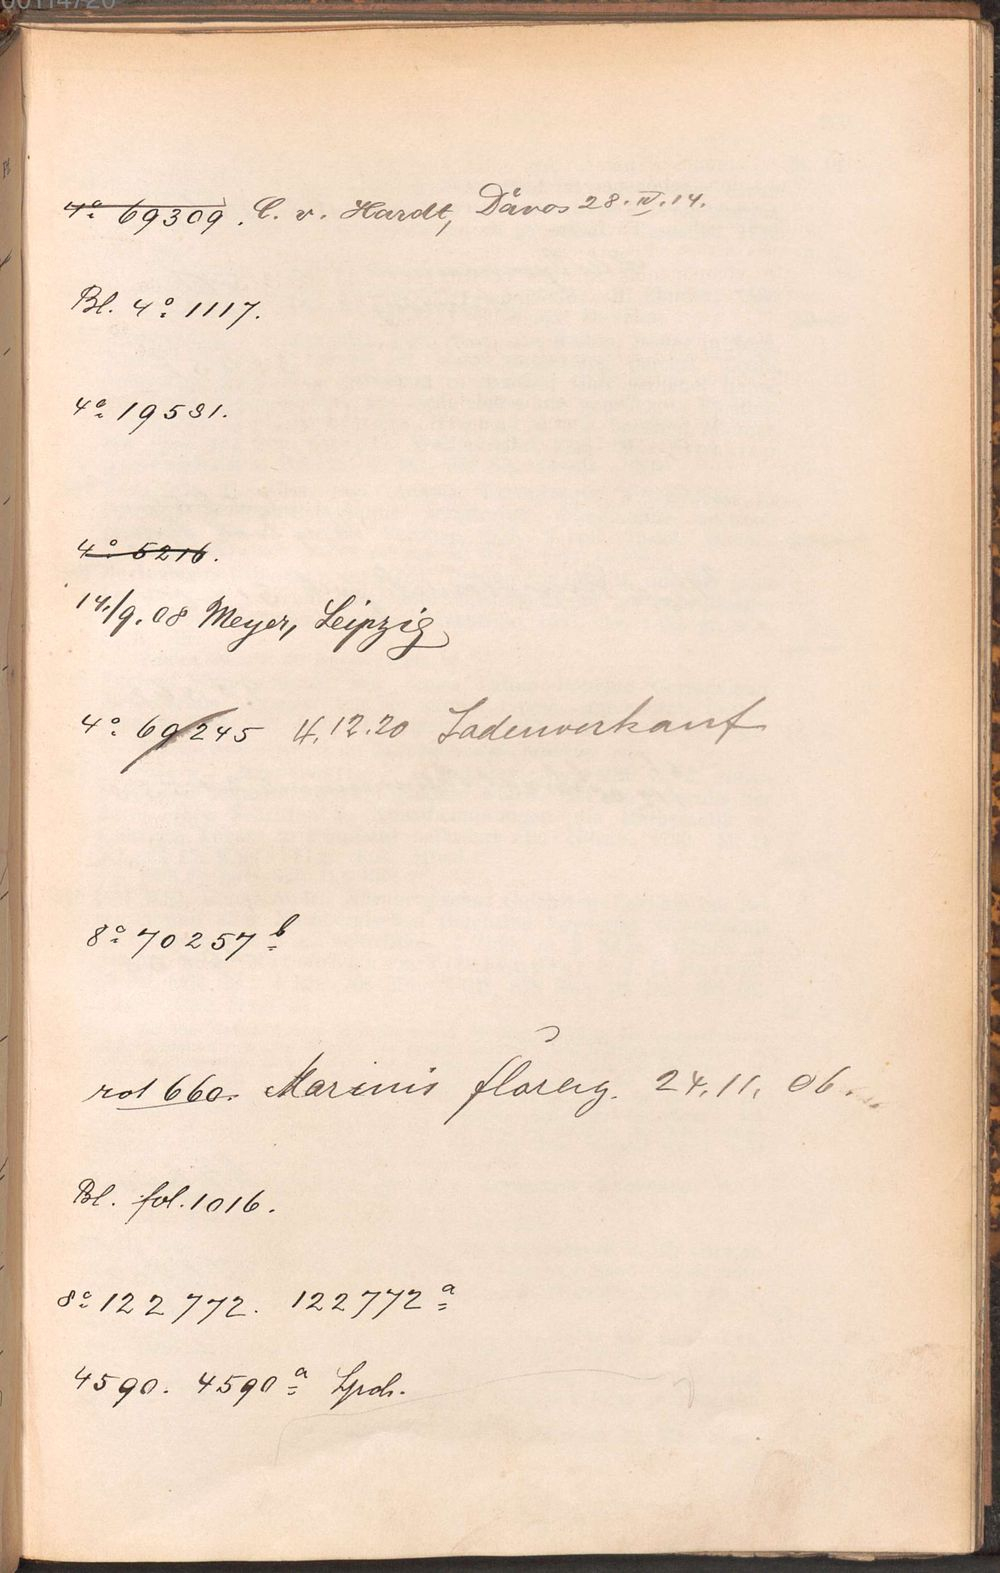 4° 69309. C. v. Hardt, Davos 28.IV.14.
Bl. 4° 1117.
4° 19581.
4° 5216.
14./9.08 Meyer, Leipzig
4° 69245 4.12.20 Ladenverkauf
8° 70257 b
rot 660. Marinis florenz. 24.11.06.
Bl. fol. 1016.
8° 122772. 122772 a
4590. 4590 a